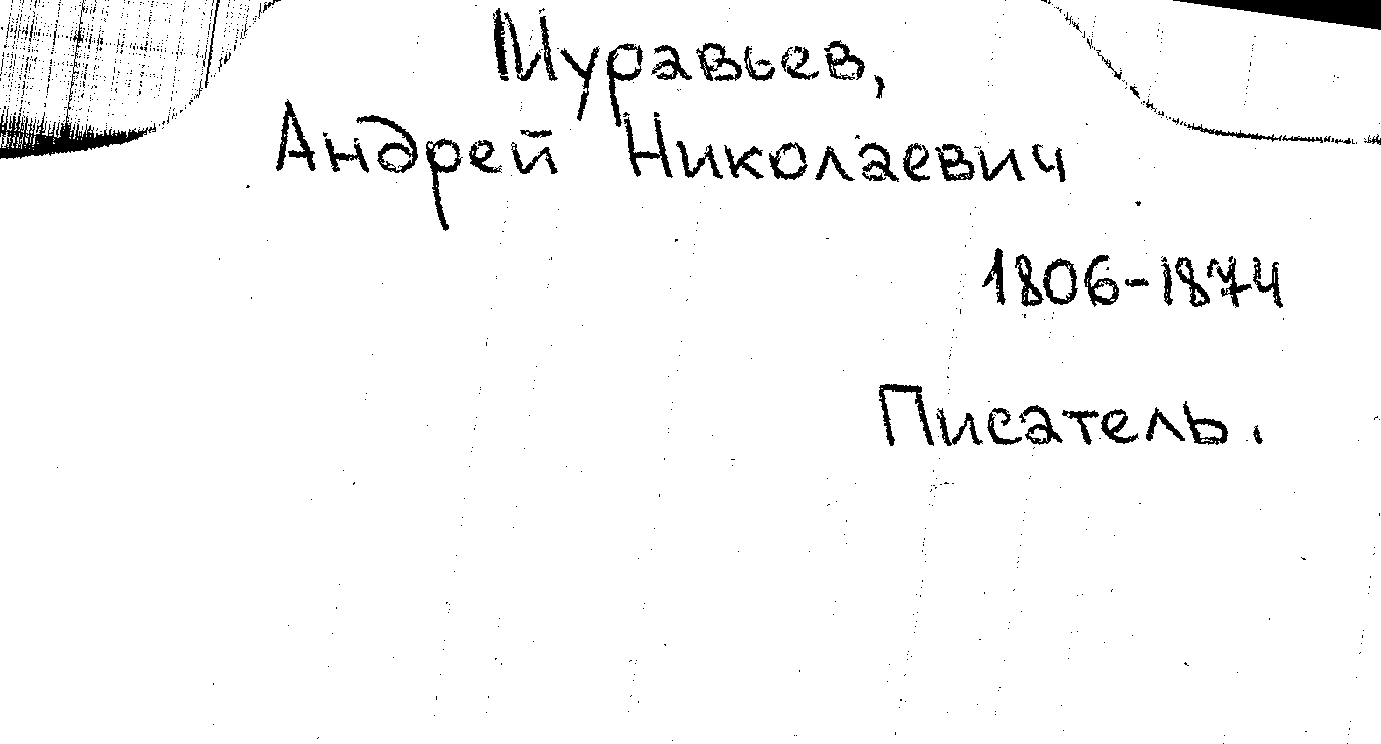 Муравьев,
Андрей Николаевич
1806-1874
Писатель.